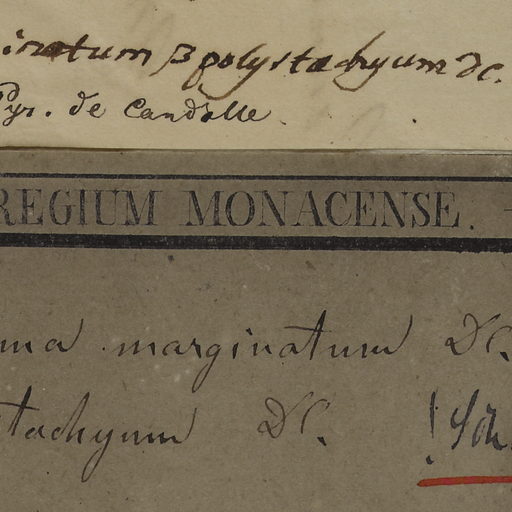 inatum β polystachyum DC.
Pyr. de Candolle
REGIUM MONACENSE.
ma marginatum DC.
stachyum DC. ! Sch.